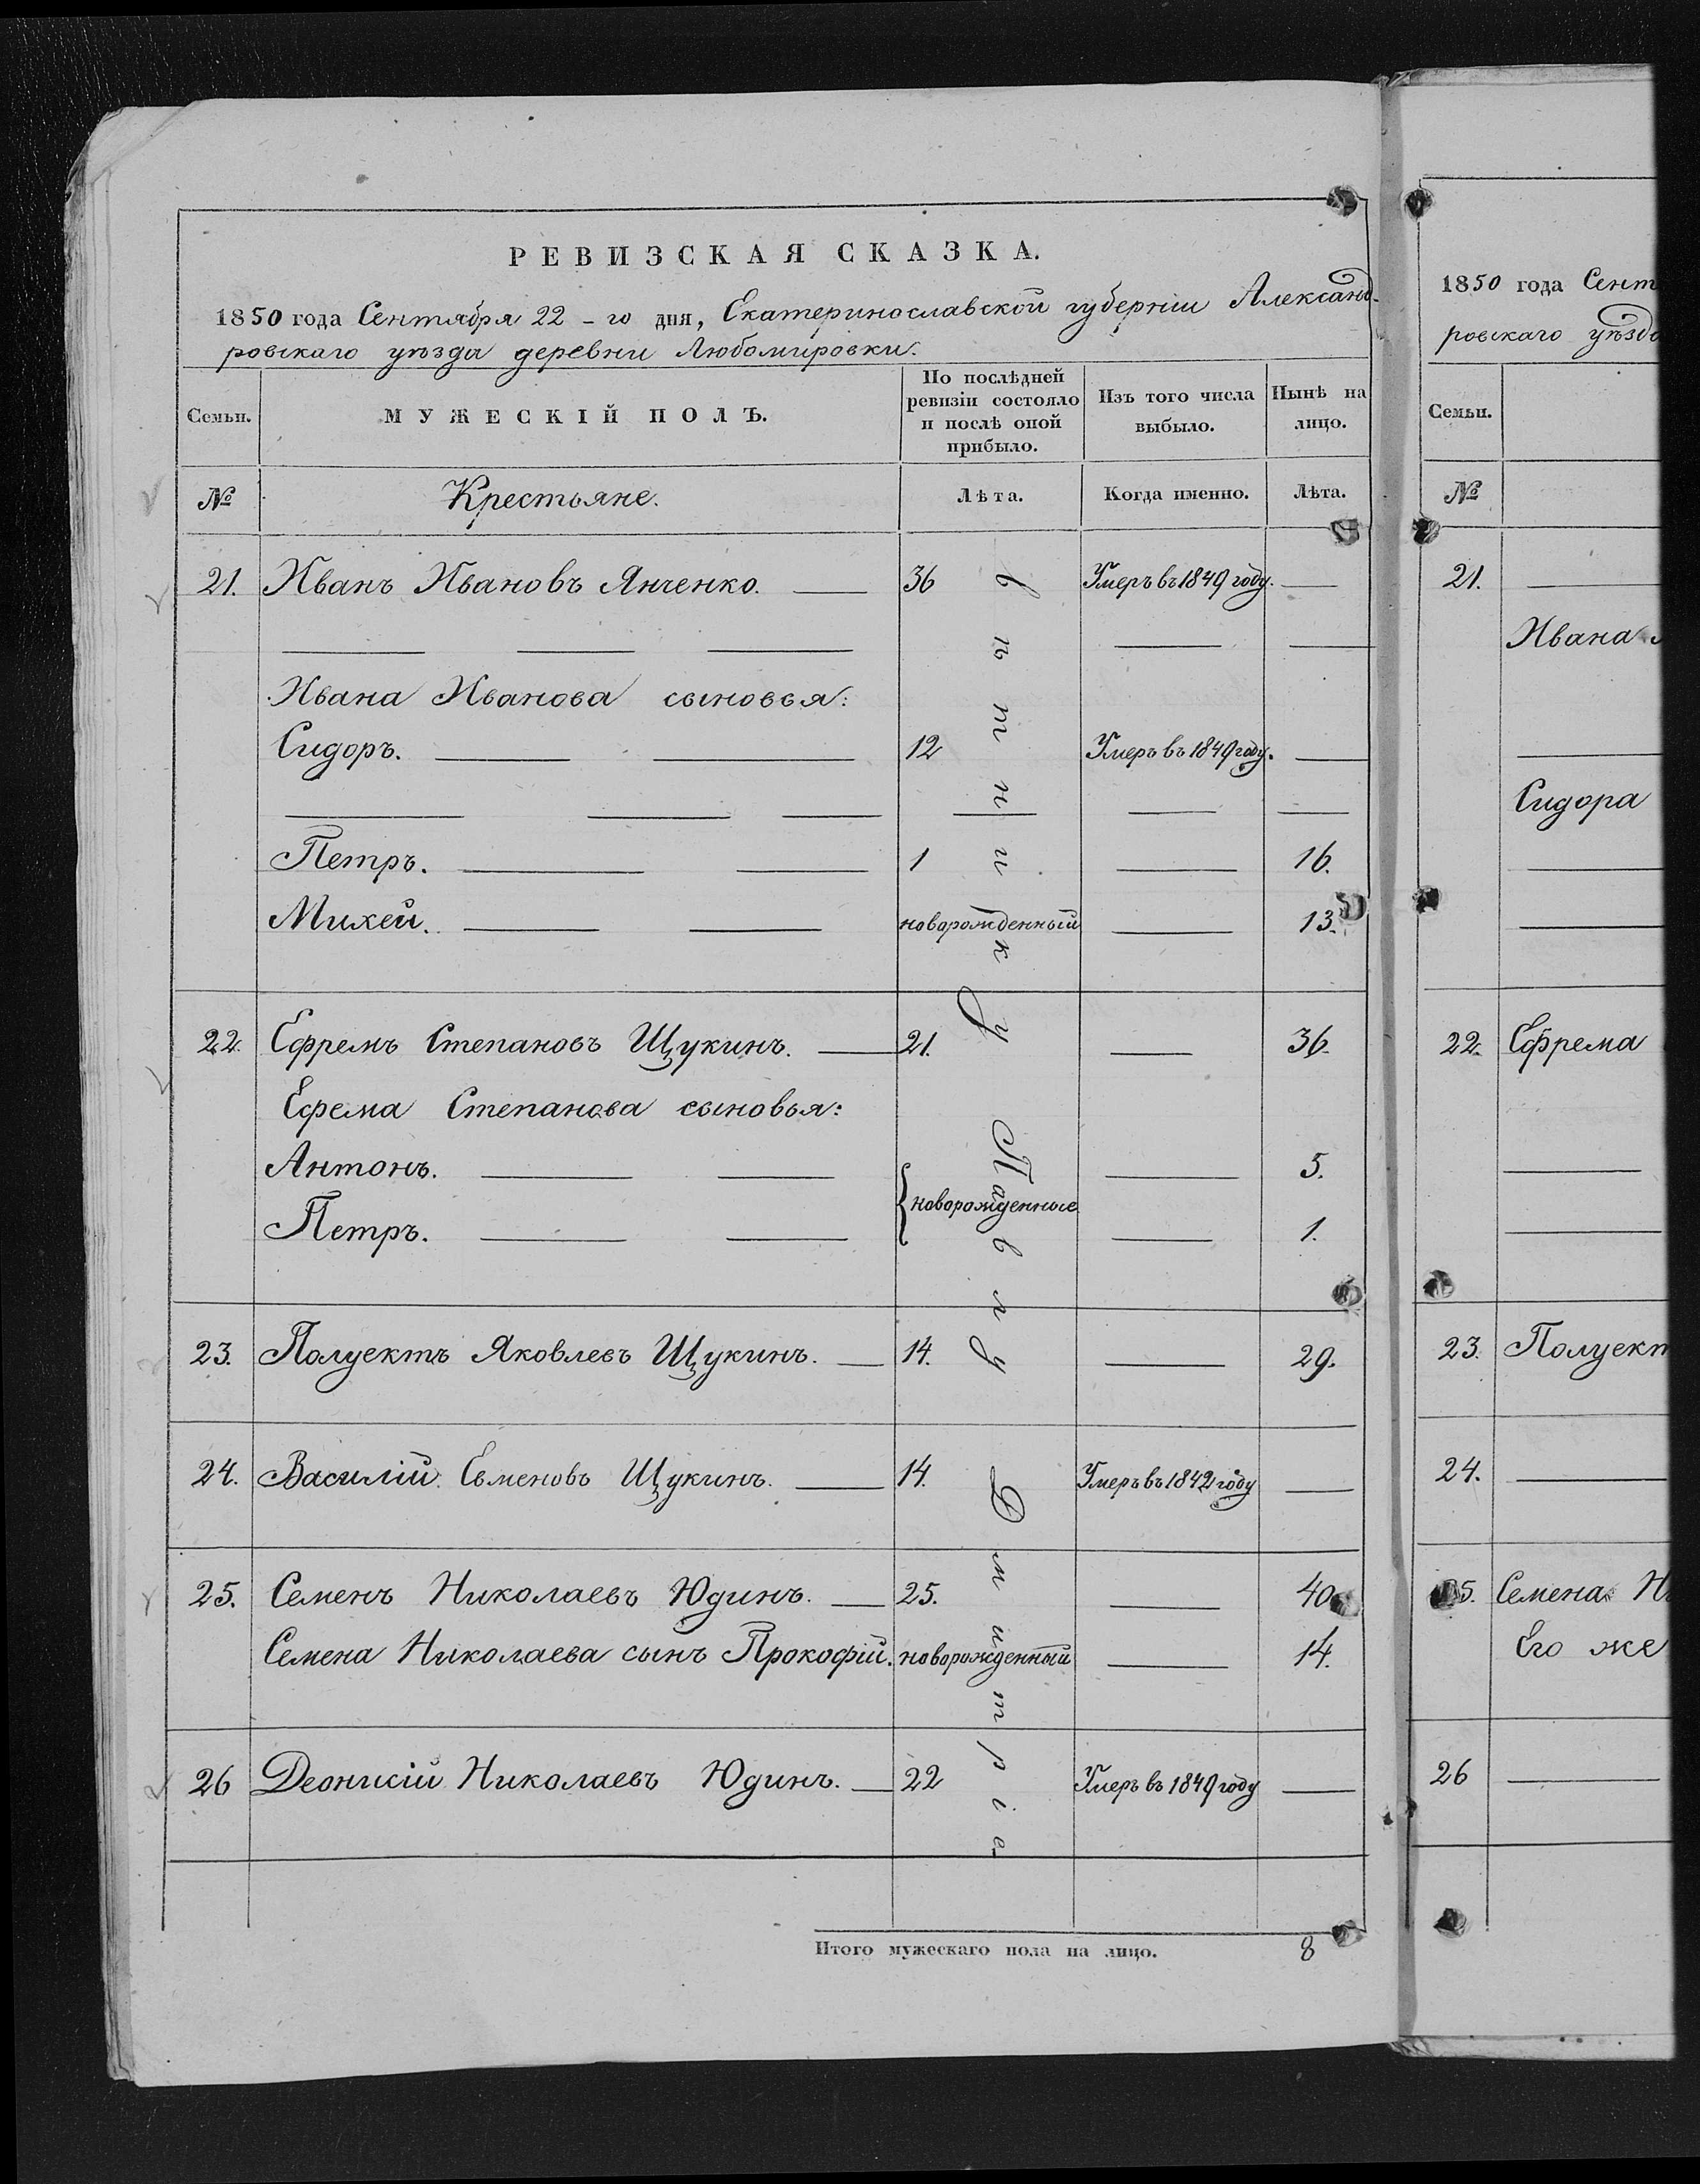 РЕВИЗСКАЯ СКАЗКА.
1850 года Сентября 22-го дня, Екатеринославской губерніи Александ-
ровскаго уѣзда деревни Любомировки.
Семьи. МУЖЕСКІЙ ПОЛЪ. По послѣдней ревизіи состояло и послѣ оной прибыло. Изъ того числа выбыло. Нынѣ на лицо.
№ Крестьяне. Лѣта. Когда именно. Лѣта.
21. Иванъ Ивановъ Янченко. 36 Умеръ въ 1849 году.
Ивана Иванова сыновья:
Сидоръ. 12 Умеръ въ 1849 году.
Петръ. 1 16.
Михей. новорожденный 13.
22. Ефремъ Степановъ Щукинъ. 21. 36.
Ефема Степанова сыновья:
Антонъ. новорожденные 5.
Петръ. 1.
23. Полуектъ Яковлевъ Щукинъ. 14. 29.
24. Василій Евменовъ Щукинъ. 14. Умеръ въ 1842 году
25. Семенъ Николаевъ Юдинъ. 25. 40
Семена Николаева сынъ Прокофій. новорожденный 14.
26 Деонисій Николаевъ Юдинъ. 22 Умеръ въ 1849 году
Итого мужескаго пола на лицо. 8
вѣтнику Павлу Дмитріе-
1850 года Сент
ровскаго уѣзда
Семьи.
№
21.
Ивана
Сидора
22. Ефрема
23. Полуект
24.
25. Семена Н
Его же
26